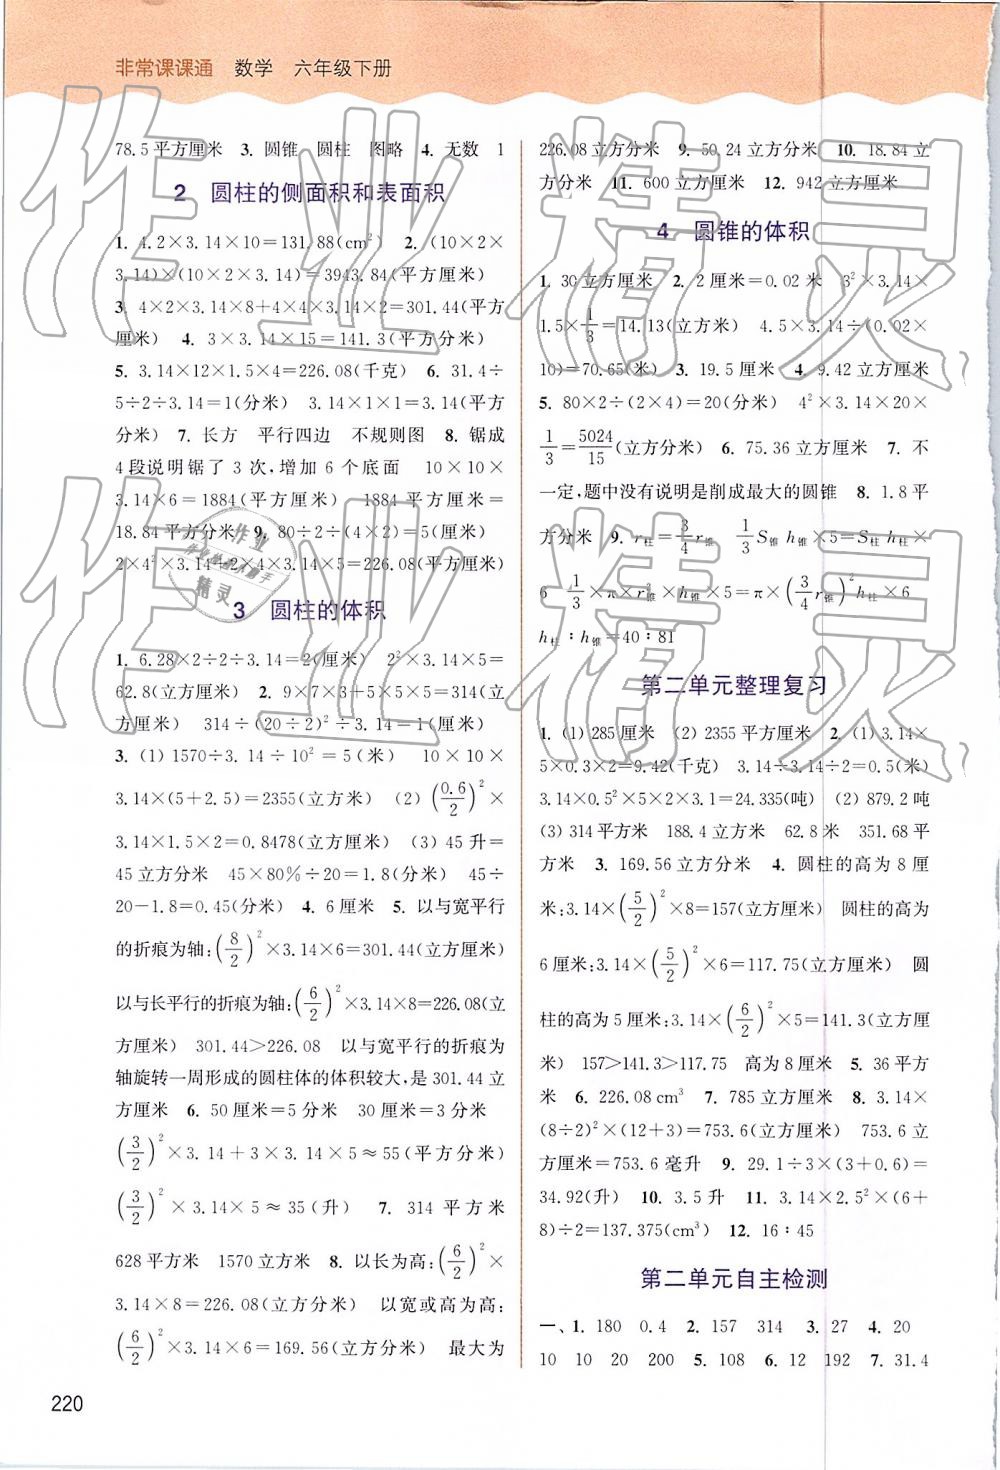 非常课课通 数学 六年级下册
78.5平方厘米 3. 圆锥 圆柱 图略 4. 无数 1
2 圆柱的侧面积和表面积
1. 4.2×3.14×10=131.88(cm²) 2. (10×2×
3.14)×(10×2×3.14)=3943.84(平方厘米)
3. 4×2×3.14×8+4×4×3.14×2=301.44(平方
厘米) 4. 3×3.14×15=141.3(平方厘米)
5. 3.14×12×1.5×4=226.08(千克) 6. 31.4÷
5÷2÷3.14=1(分米) 3.14×1×1=3.14(平方
分米) 7. 长方 平行四边 不规则图 8. 锯成
4段说明锯了3次,增加6个底面 10×10×
3.14×6=1884(平方厘米) 1884平方厘米=
18.84平方分米 9. 80÷2÷(4×2)=5(厘米)
2×4²×3.14+2×4×3.14×5=226.08(平方厘米)
3 圆柱的体积
1. 6.28×2÷2÷3.14=2(厘米) 2²×3.14×5=
62.8(立方厘米) 2. 9×7×3.14+5=314(立
方厘米) 314÷(20÷2)²÷3.14=1(厘米)
3. (1) 1570÷3.14÷10²=5(米) 10×10×
3.14×(5+2.5)=2355(立方米) (2) (0.6/2)²×
3.14×1.5×2=0.8478(立方米) (3) 45升=
45立方分米 45×80%÷20=1.8(分米) 45÷
20-1.8=0.45(分米) 4. 6厘米 5. 以与宽平行
的折痕为轴:(8/2)²×3.14×6=301.44(立方厘米)
以与长平行的折痕为轴:(6/2)²×3.14×8=226.08(立
方厘米) 301.44>226.08 以与宽平行的折痕为
轴旋转一周形成的圆柱体的体积较大,是301.44立
方厘米 6. 50厘米=5分米 30厘米=3分米
(3/2)²×3.14+3×3.14×5≈55(平方分米)
(3/2)²×3.14×5≈35(升) 7. 314平方米
628平方米 1570立方米 8. 以长为高:(6/2)²×
3.14×8=226.08(立方分米) 以宽或高为高:
(6/2)²×3.14×6=169.56(立方分米) 最大为
226.08立方分米 9. 50.24立方分米 10. 18.84立
方分米 11. 600立方厘米 12. 942立方厘米
4 圆锥的体积
1. 30立方厘米 2. 2厘米=0.02米 3²×3.14×
1.5×1/3=14.13(立方米) 4.5×3.14÷(0.02×
10)=70.65(米) 3. 19.5厘米 4. 9.42立方厘米
5. 80×2÷(2×4)=20(分米) 4²×3.14×20×
1/3=5024/15(立方分米) 6. 75.36立方厘米 7. 不
一定,题中没有说明是削成最大的圆锥 8. 1.8平
方分米 9. r柱=3/4r锥 1/3S锥h锥×5=S柱h柱×
6 1/3×π×r²锥×h锥×5=π×(3/4r锥)²h柱×6
h柱:h锥=40:81
第二单元整理复习
1. (1) 285厘米 (2) 2355平方厘米 2. (1) 3.14×
5×0.3×2=9.42(千克) 3.14÷3.14÷2=0.5(米)
3.14×0.5²×5×2×3.1=24.335(吨) (2) 879.2吨
(3) 314平方米 188.4立方米 62.8米 351.68平
方米 3. 169.56立方分米 4. 圆柱的高为8厘
米:3.14×(5/2)²×8=157(立方厘米) 圆柱的高为
6厘米:3.14×(5/2)²×6=117.75(立方厘米) 圆
柱的高为5厘米:3.14×(6/2)²×5=141.3(立方厘
米) 157>141.3>117.75 高为8厘米 5. 36平方
厘米 6. 226.08cm³ 7. 785立方厘米 8. 3.14×
(8÷2)²×(12+3)=753.6(立方厘米) 753.6立
方厘米=753.6毫升 9. 29.1÷3×(3+0.6)=
34.92(升) 10. 3.5升 11. 3.14×2.5²×(6+
8)÷2=137.375(cm³) 12. 16:45
第二单元自主检测
一、1. 180 0.4 2. 157 314 3. 27 4. 20
10 10 20 200 5. 108 6. 12 192 7. 31.4
220
作业精灵